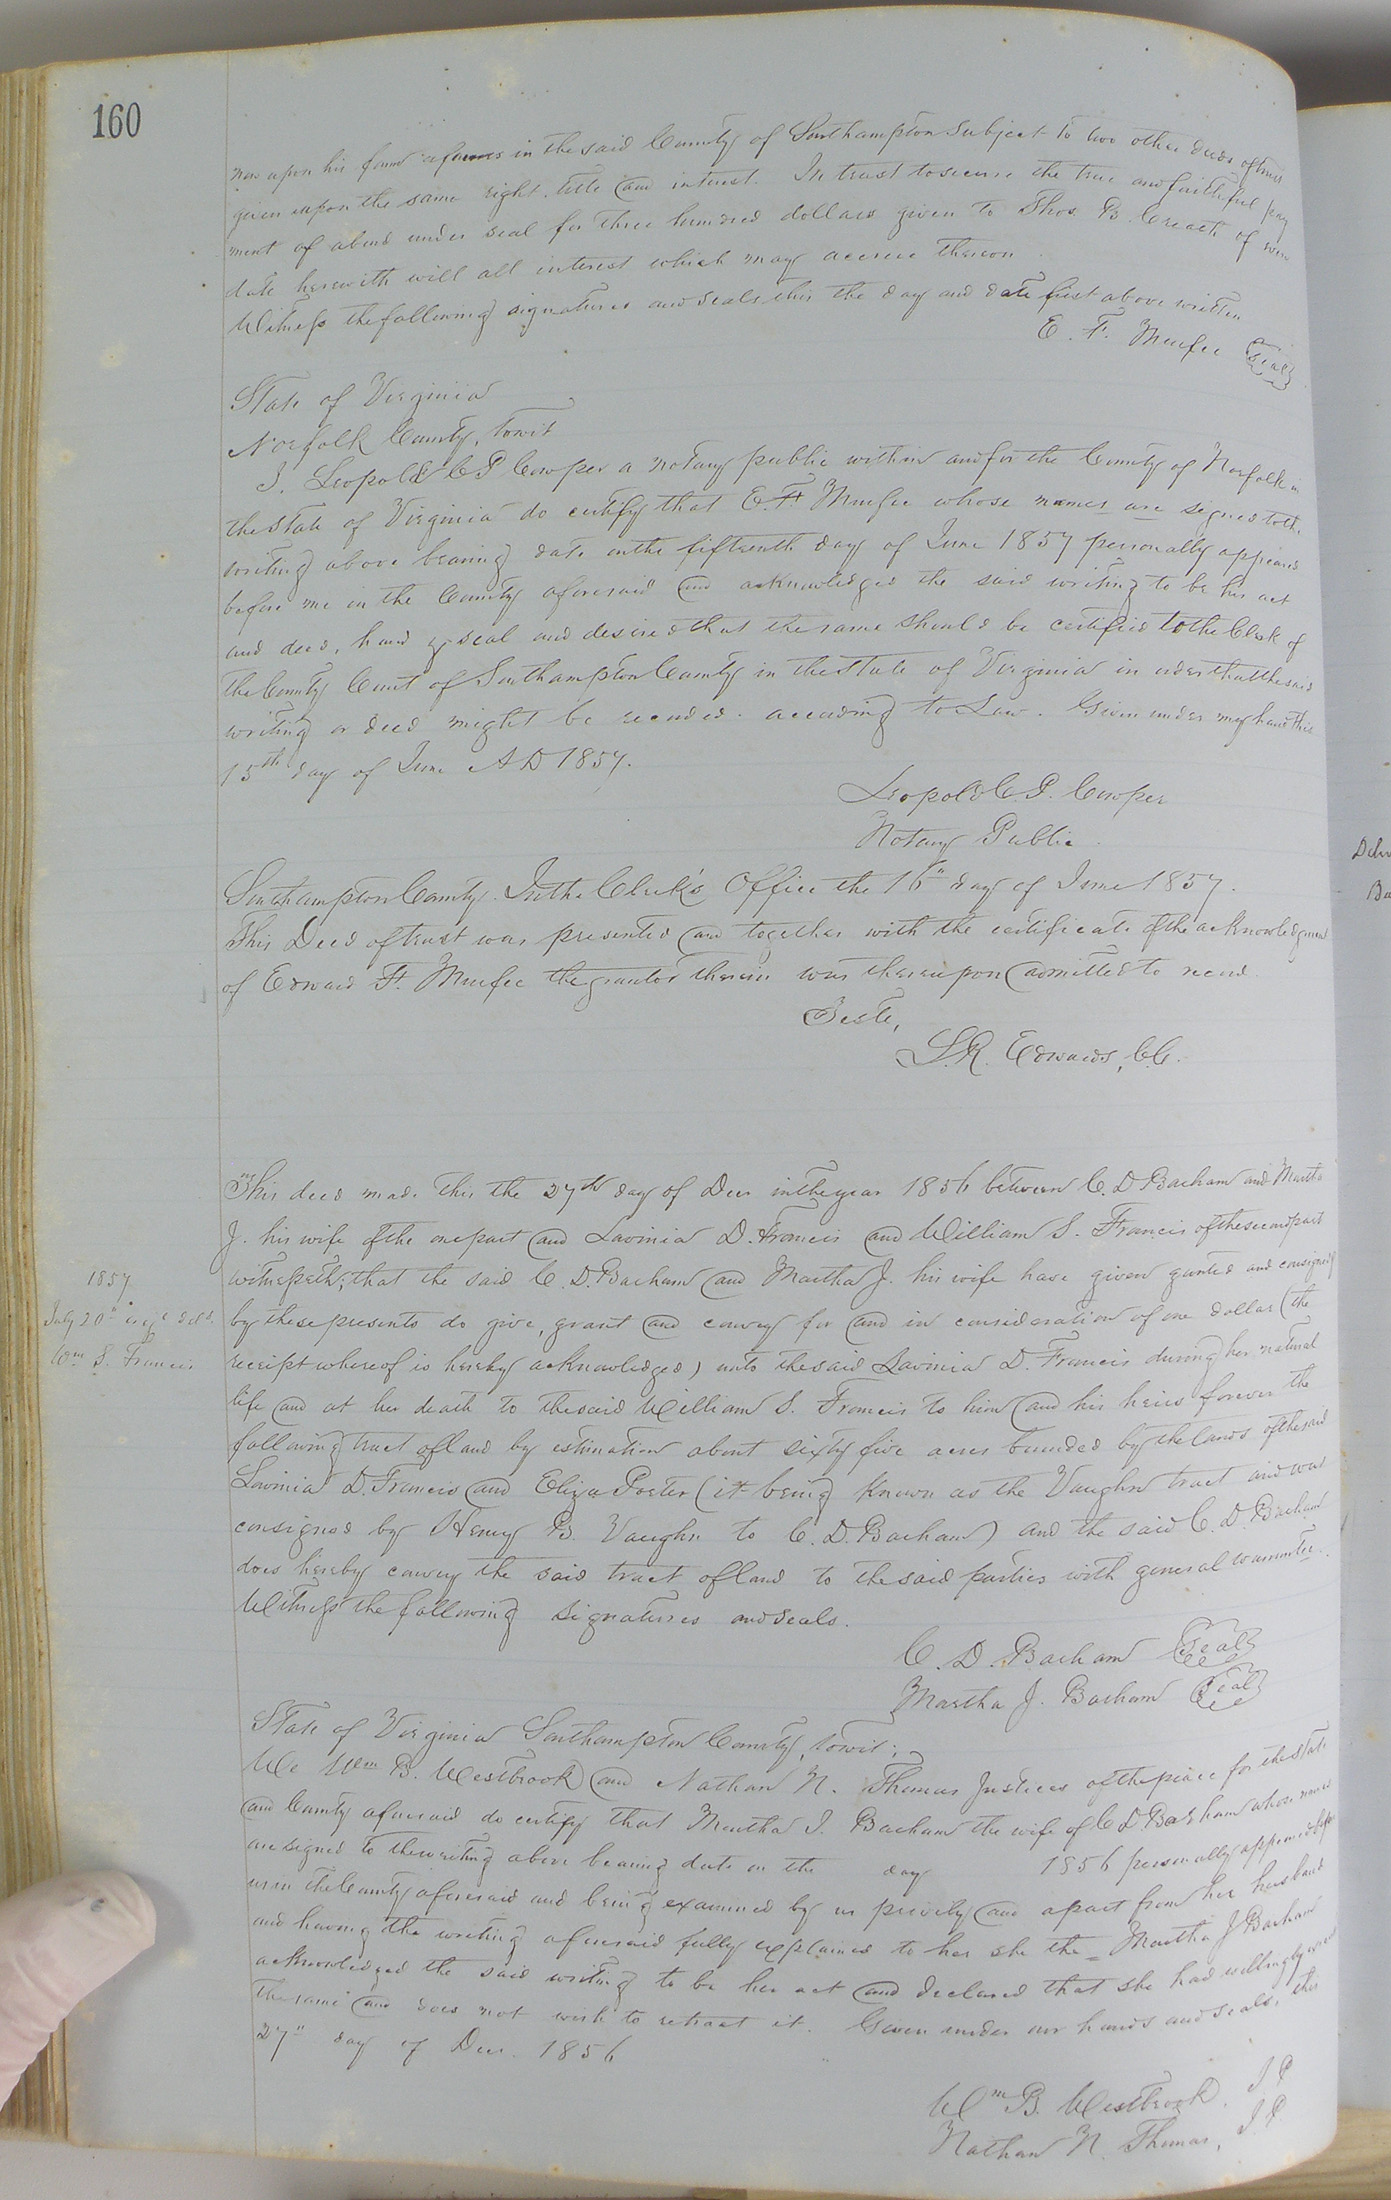 160
now upon his farm afores in the said County of Southampton subject to two other deeds of trust
given upon the same right, title and interest. In trust to secure the true and faithful pay
ment of a bond under seal for three hundred dollars given to Thos. B. of even
date herewith will all interest which may accrue thereon
Witness the following signatures and seals this the day and date first above written
E. F. Murfee Seal
State of Virginia
Norfolk County, towit
I. Leopold C P Cowper a notary public within and for the County of Norfolk in
the State of Virginia do certify that E. F. Murfee whose names are signed to the
writing above bearing date on the fifteenth day of June 1857 personally appeared
before me in the County aforesaid and acknowledged the said writing to be his act
and deed, hand & seal and desired that the same should be certified to the Clerk of
the County Court of Southampton County in the State of Virginia in order that the said
writing or deed might be recorded. according to Law. Given under my hand this
15th day of June A D 1857.
Leopold C. P. Cowper
Notary Public.
Southampton County. In the Clerk's Office the 16" day of June 1857.
This Deed of trust was presented and together with the certificate of the acknowledgment
of Edward F. Murfee the grantor therein was thereupon admitted to record.
Teste,
L. R. Edwards, C.C.
This deed made this the 27th day of Decr in the year 1856 between C. D Barham and Martha
J. his wife of the one part and Lavinia D. Francis and William S. Francis of the second part
witnesseth; that the said C. D. Barham and Martha J. his wife have given granted and consigned
1857
July 20" deld.
Wm S. Francis
by these presents do give, grant and convey for and in consideration of one dollar (the
receipt whereof is hereby acknowledged) unto the said Lavinia D. Francis during her natural
life and at her death to the said William S. Francis to him and his heirs forever the
following tract of land by estimation about sixty five acres bounded by the lands of the said
Lavinia D. Francis and Eliza Porter (it being known as the Vaughn tract and was
consigned by Henry B. Vaughn to C. D. Barham) and the said C. D. Barham
does hereby convey the said tract of land to the said parties with general warrantee.
Witness the following signatures and seals.
C. D. Barham Seal
Martha J. Barham Seal
State of Virginia Southampton County, towit;
We Wm B. Westbrook and Nathan N. Thomas Justices of the peace for the State
and County aforesaid do certify that Martha J. Barham the wife of C D Barham whose names
are signed to the writing above bearing date on the day 1856 personally appeared before
us in the County aforesaid and being examined by us privily and apart from her husband
and having the writing aforesaid fully explained to her she the Martha J Barham
acknowledged the said writing to be her act and declared that she had willingly
the same and does not wish to retract it. Given under our hands and seals, this
27" day of Decr. 1856
Wm B. Westbrook, J P
Nathan N. Thomas, J. P